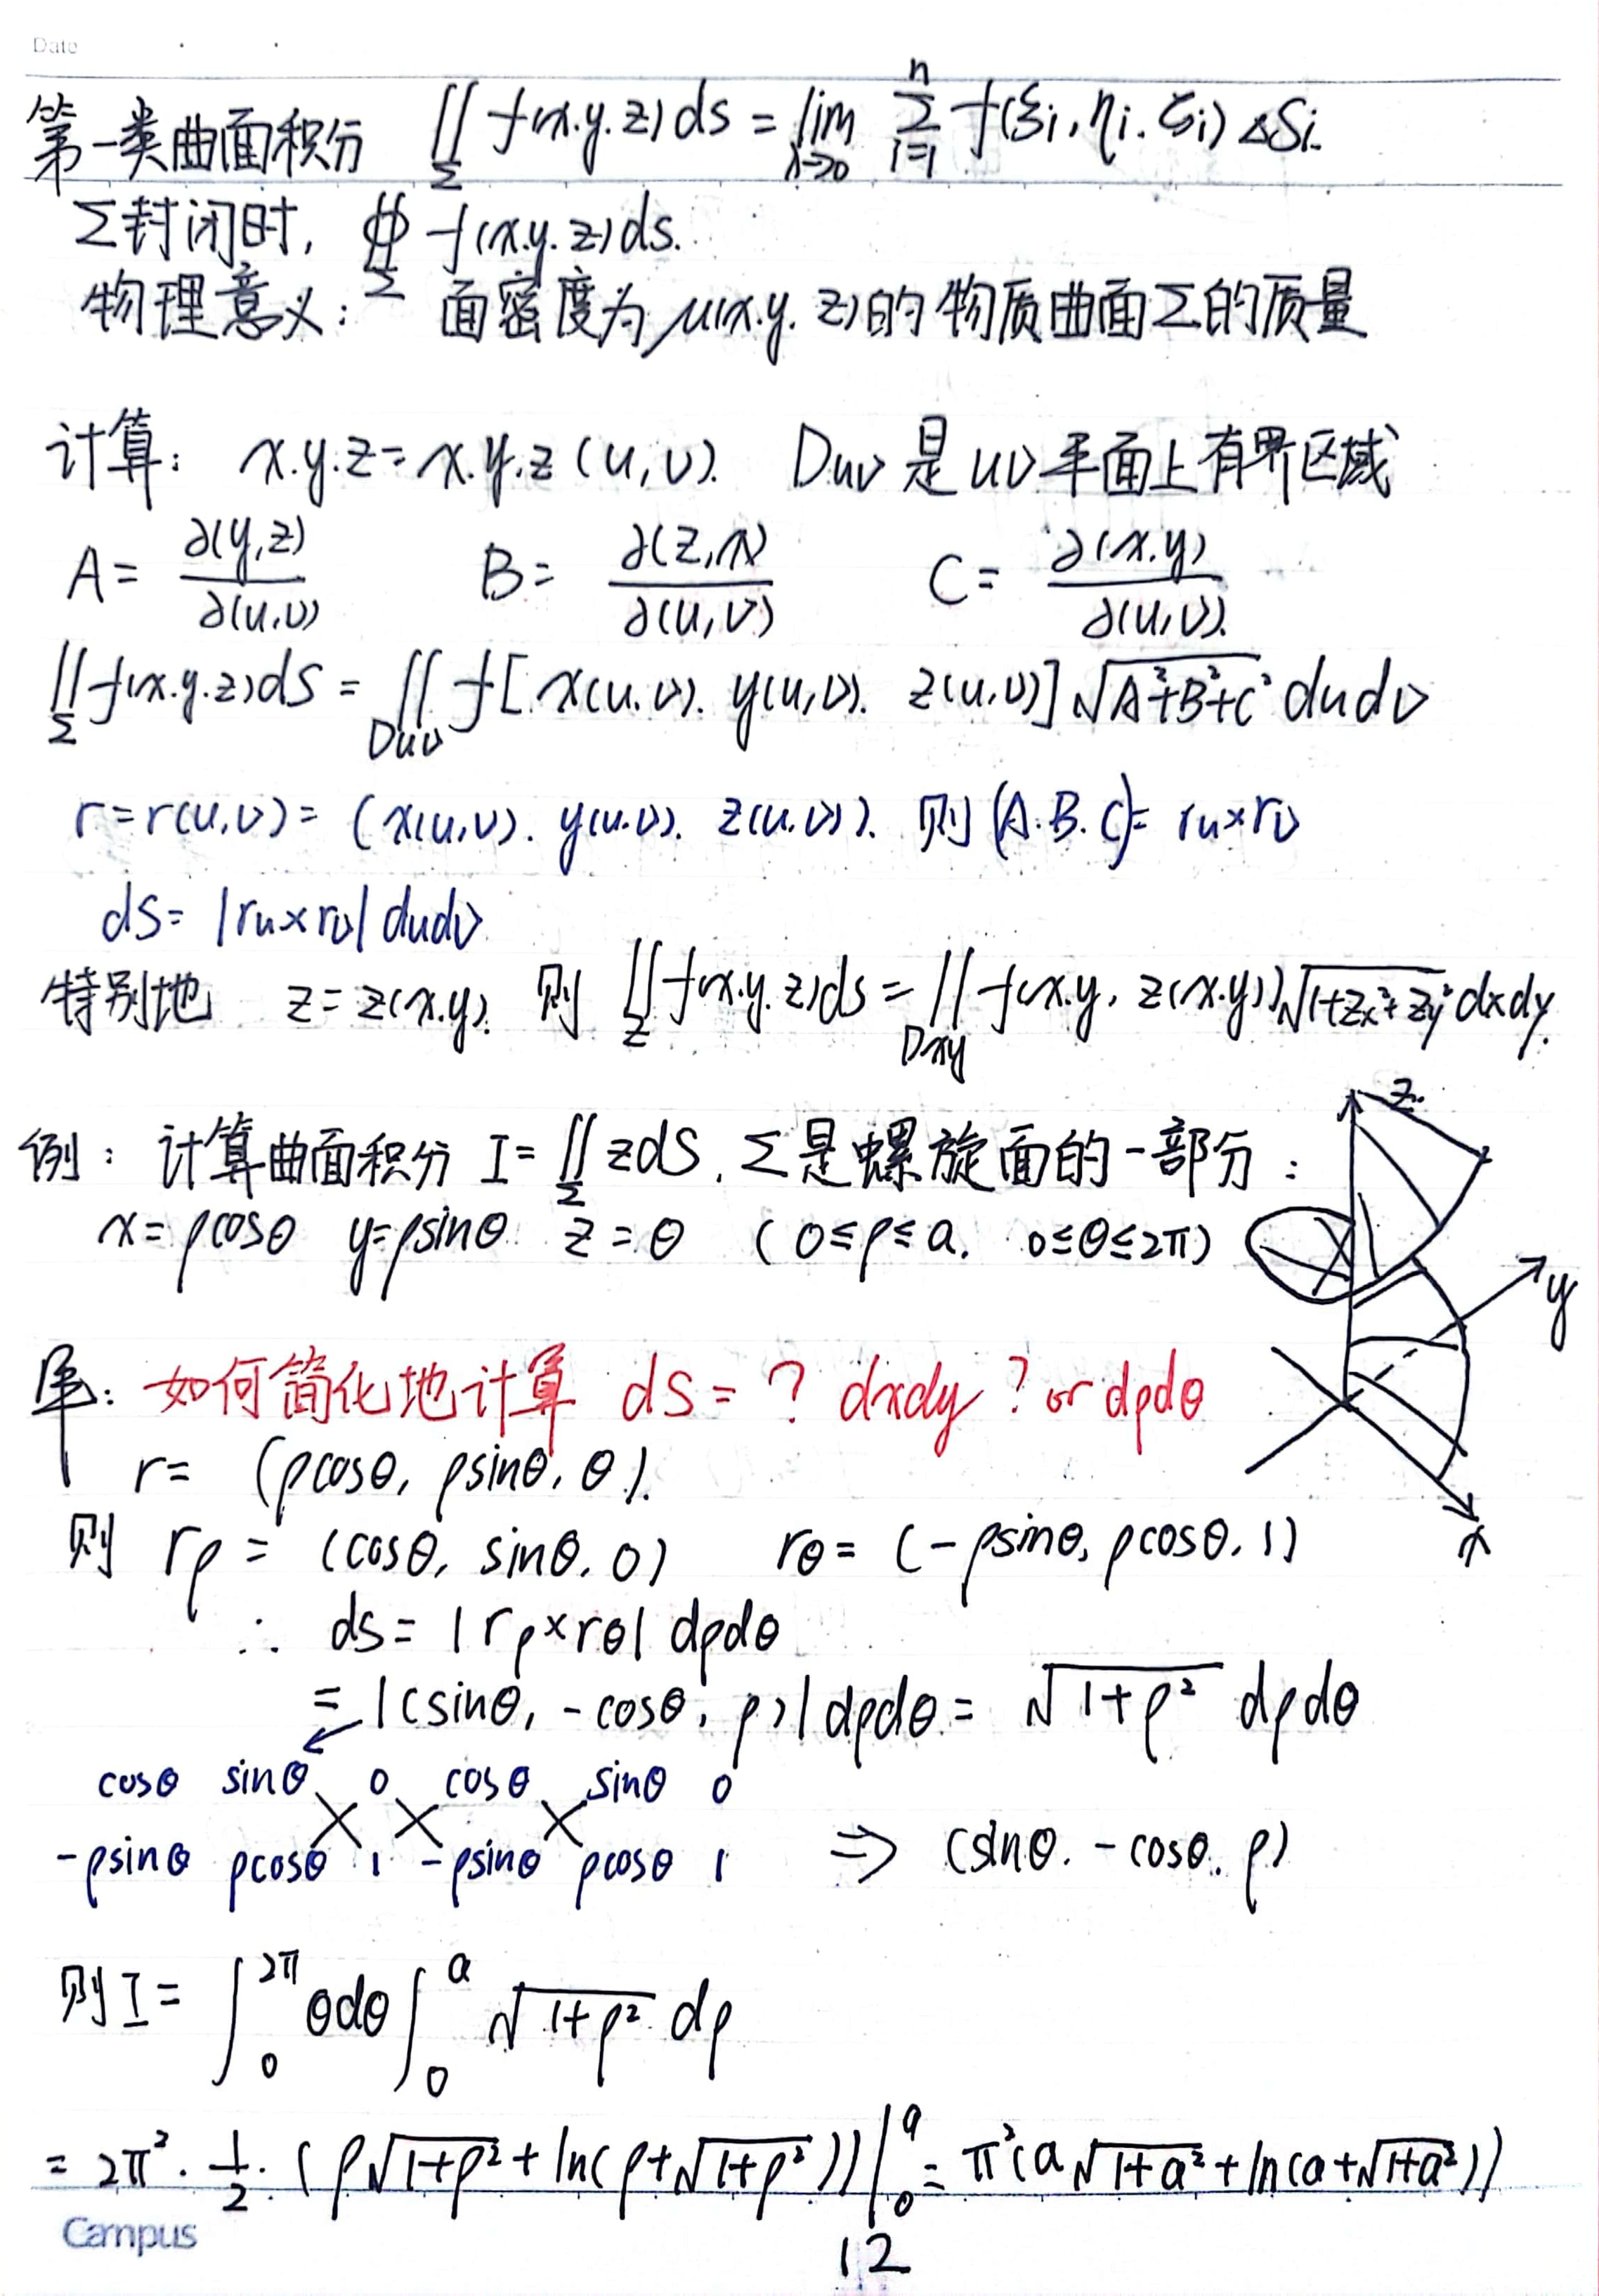 Date
第一类曲面积分 ∬_Σ f(x.y.z)ds = lim_{λ→0} Σ_{i=1}^{n} f(ξi, ηi. ζi) ΔSi.
Σ封闭时, ∯_Σ f(x.y.z)ds.
物理意义: 面密度为 μ(x.y.z)的物质曲面Σ的质量
计算: x.y.z = x.y.z (u,v). Duv 是 uv 平面上有界区域
A = ∂(y,z)/∂(u,v) B = ∂(z,x)/∂(u,v) C = ∂(x.y)/∂(u,v).
∬_Σ f(x.y.z)ds = ∬_Duv f[x(u.v). y(u,v). z(u,v)] √(A²+B²+C²) dudv
r = r(u,v) = (x(u,v). y(u.v). z(u.v)). 则 (A.B.C) = ru×rv
ds = |ru×rv| dudv
特别地 z = z(x.y). 则 ∬_Σ f(x.y.z)ds = ∬_Dxy f(x.y, z(x.y))√(1+Zx²+Zy²) dxdy.
例: 计算曲面积分 I = ∬_Σ zdS, Σ是螺旋面的一部分:
x = ρcosθ y = ρsinθ z = θ (0≤ρ≤a. 0≤θ≤2π)
z.
y
x
解: 如何简化地计算 ds = ? dxdy ? or dρdθ
r = (ρcosθ, ρsinθ, θ).
则 rρ = (cosθ, sinθ, 0) rθ = (-ρsinθ, ρcosθ, 1)
∴ ds = |rρ×rθ| dρdθ
= |(sinθ, -cosθ, ρ)| dρdθ = √(1+ρ²) dρdθ
cosθ sinθ 0 cosθ sinθ 0
-ρsinθ ρcosθ 1 -ρsinθ ρcosθ 1 ⇒ (sinθ. -cosθ. ρ)
则 I = ∫_0^{2π} θdθ ∫_0^a √(1+ρ²) dρ
= 2π² · 1/2 · (ρ√(1+ρ²) + ln(ρ+√(1+ρ²)))|_0^a = π²(a√(1+a²) + ln(a+√(1+a²)))
Campus
12